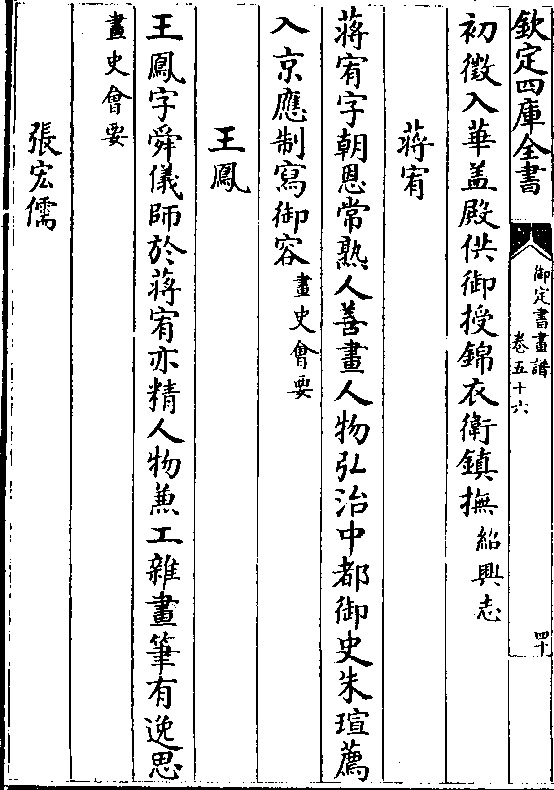 欽定四庫全書
御定書畫譜
卷五十六
四十
初徵入華盖殿供御授錦衣衛鎮撫紹興志
蔣宥
蔣宥字朝恩常熟人善畫人物弘治中都御史朱瑄薦
入京應制寫御容畫史會要
王鳳
王鳳字舜儀師於蔣宥亦精人物兼工雜畫筆有逸思
畫史會要
張宏儒